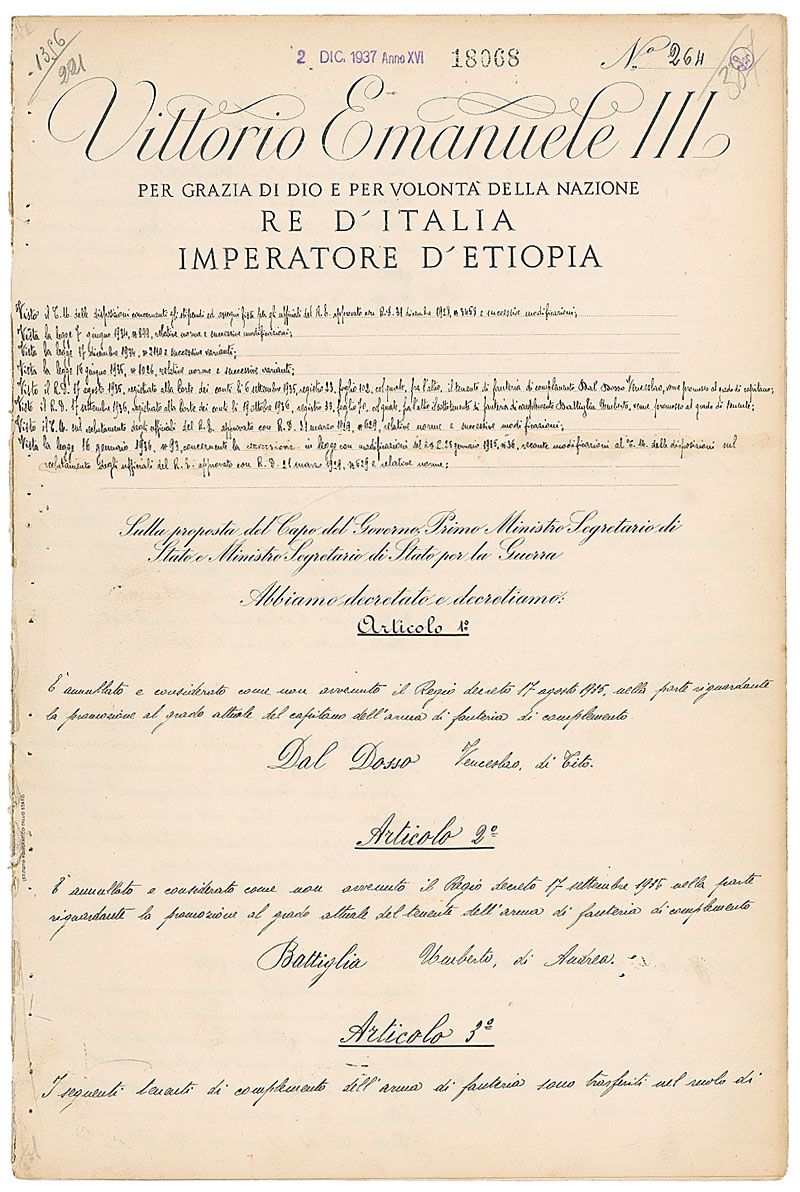 1356
221
2 DIC. 1937 Anno XVI 18068 Nº 264
Vittorio Emanuele III
PER GRAZIA DI DIO E PER VOLONTÀ DELLA NAZIONE
RE D'ITALIA
IMPERATORE D'ETIOPIA
Visto il T.U. delle disposizioni concernenti gli stipendi ed assegni fissi per gli ufficiali del R.E. approvato con R.D. 31 dicembre 1928, n 3458 e successive modificazioni;
Vista la legge 7 giugno 1934, n 899, relative norme e successive modificazioni;
Vista la legge 17 dicembre 1934, n 2110 e successive varianti;
Vista la legge 16 giugno 1935, n 1026, relative norme e successive varianti;
Visto il R.D. 17 agosto 1935, registrato alla Corte dei conti li 6 settembre 1935, registro 23, foglio 102, col quale, fra l'altro, il tenente di fanteria di complemento Dal Dosso Venceslao, venne promosso al grado di capitano;
Visto il R.D. 17 settembre 1936, registrato alla Corte dei conti li 19 ottobre 1936, registro 33, foglio 70, col quale, fra l'altro il sottotenente di fanteria di complemento Battiglia Umberto, venne promosso al grado di tenente;
Visto il T.U. sul reclutamento degli ufficiali del R.E. approvato con R.D. 21 marzo 1929, n 629, relative norme e successive modificazioni;
Vista la legge 16 gennaio 1936, n 93, concernente la conversione in legge con modificazioni del R.D.L. 25 gennaio 1935, n 36, recante modificazioni al T.U. delle disposizioni sul
reclutamento degli ufficiali del R.E. approvato con R.D. 21 marzo 1929, n 629 e relative norme;
Sulla proposta del Capo del Governo, Primo Ministro Segretario di
Stato e Ministro Segretario di Stato per la Guerra
Abbiamo decretato e decretiamo:
Articolo 1º
È annullato e considerato come non avvenuto il Regio decreto 17 agosto 1935, nella parte riguardante
la promozione al grado attuale del capitano dell'arma di fanteria di complemento.
Dal Dosso Venceslao, di Tito.
Articolo 2º
È annullato e considerato come non avvenuto il Regio decreto 17 settembre 1936 nella parte
riguardante la promozione al grado attuale del tenente dell'arma di fanteria di complemento
Battiglia Umberto, di Andrea.
Articolo 3º
I seguenti tenenti di complemento dell'arma di fanteria sono trasferiti nel ruolo di
ISTITUTO POLIGRAFICO DELLO STATO